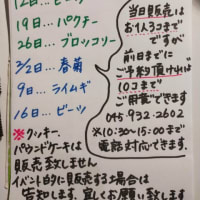 12日…ビーツ
19日…パクチー
26日…ブロッコリー
3/2日…春菊
9日…ライムギ
16日…ビーツ
当日販売は
お1人3コまで
ですが
前日までに
ご予約頂ければ
10コまで
ご用意できます
045-932-2602
※10:30〜15:00まで
電話対応できます.
※クッキー、
パウンドケーキは
販売致しません
イベント的に販売する場合は
告知します。宜しくお願い致します